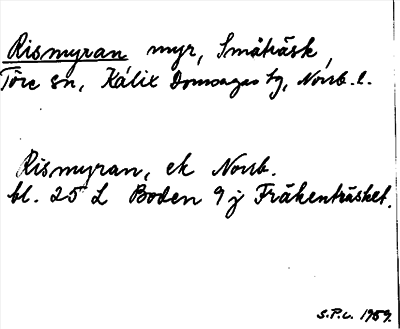 Rismyran myr, Småträsk,
Töre sn, Kalix Domsagas tg, Norrb. l.
Rismyran, ek Norrb.
bl. 25 L Boden 9 j Fräkenträsket.
S.P.u. 1959.